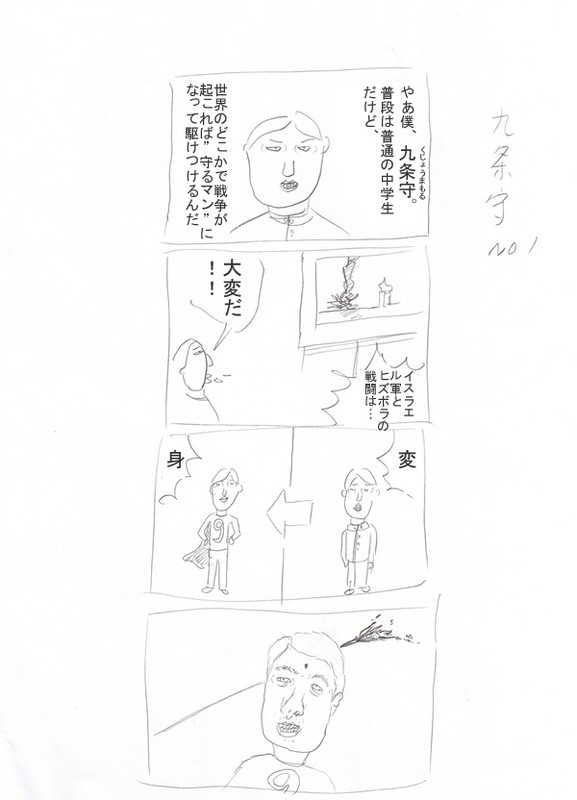 九条守
NO 1
やあ僕、九条守。
くじょうまもる
普段は普通の中学生
だけど、
世界のどこかで戦争が
起これば”守るマン”に
なって駆けつけるんだ
イスラエ
ル軍と
ヒズボラの
戦闘は…
大変だ
！！
変
身
9
9